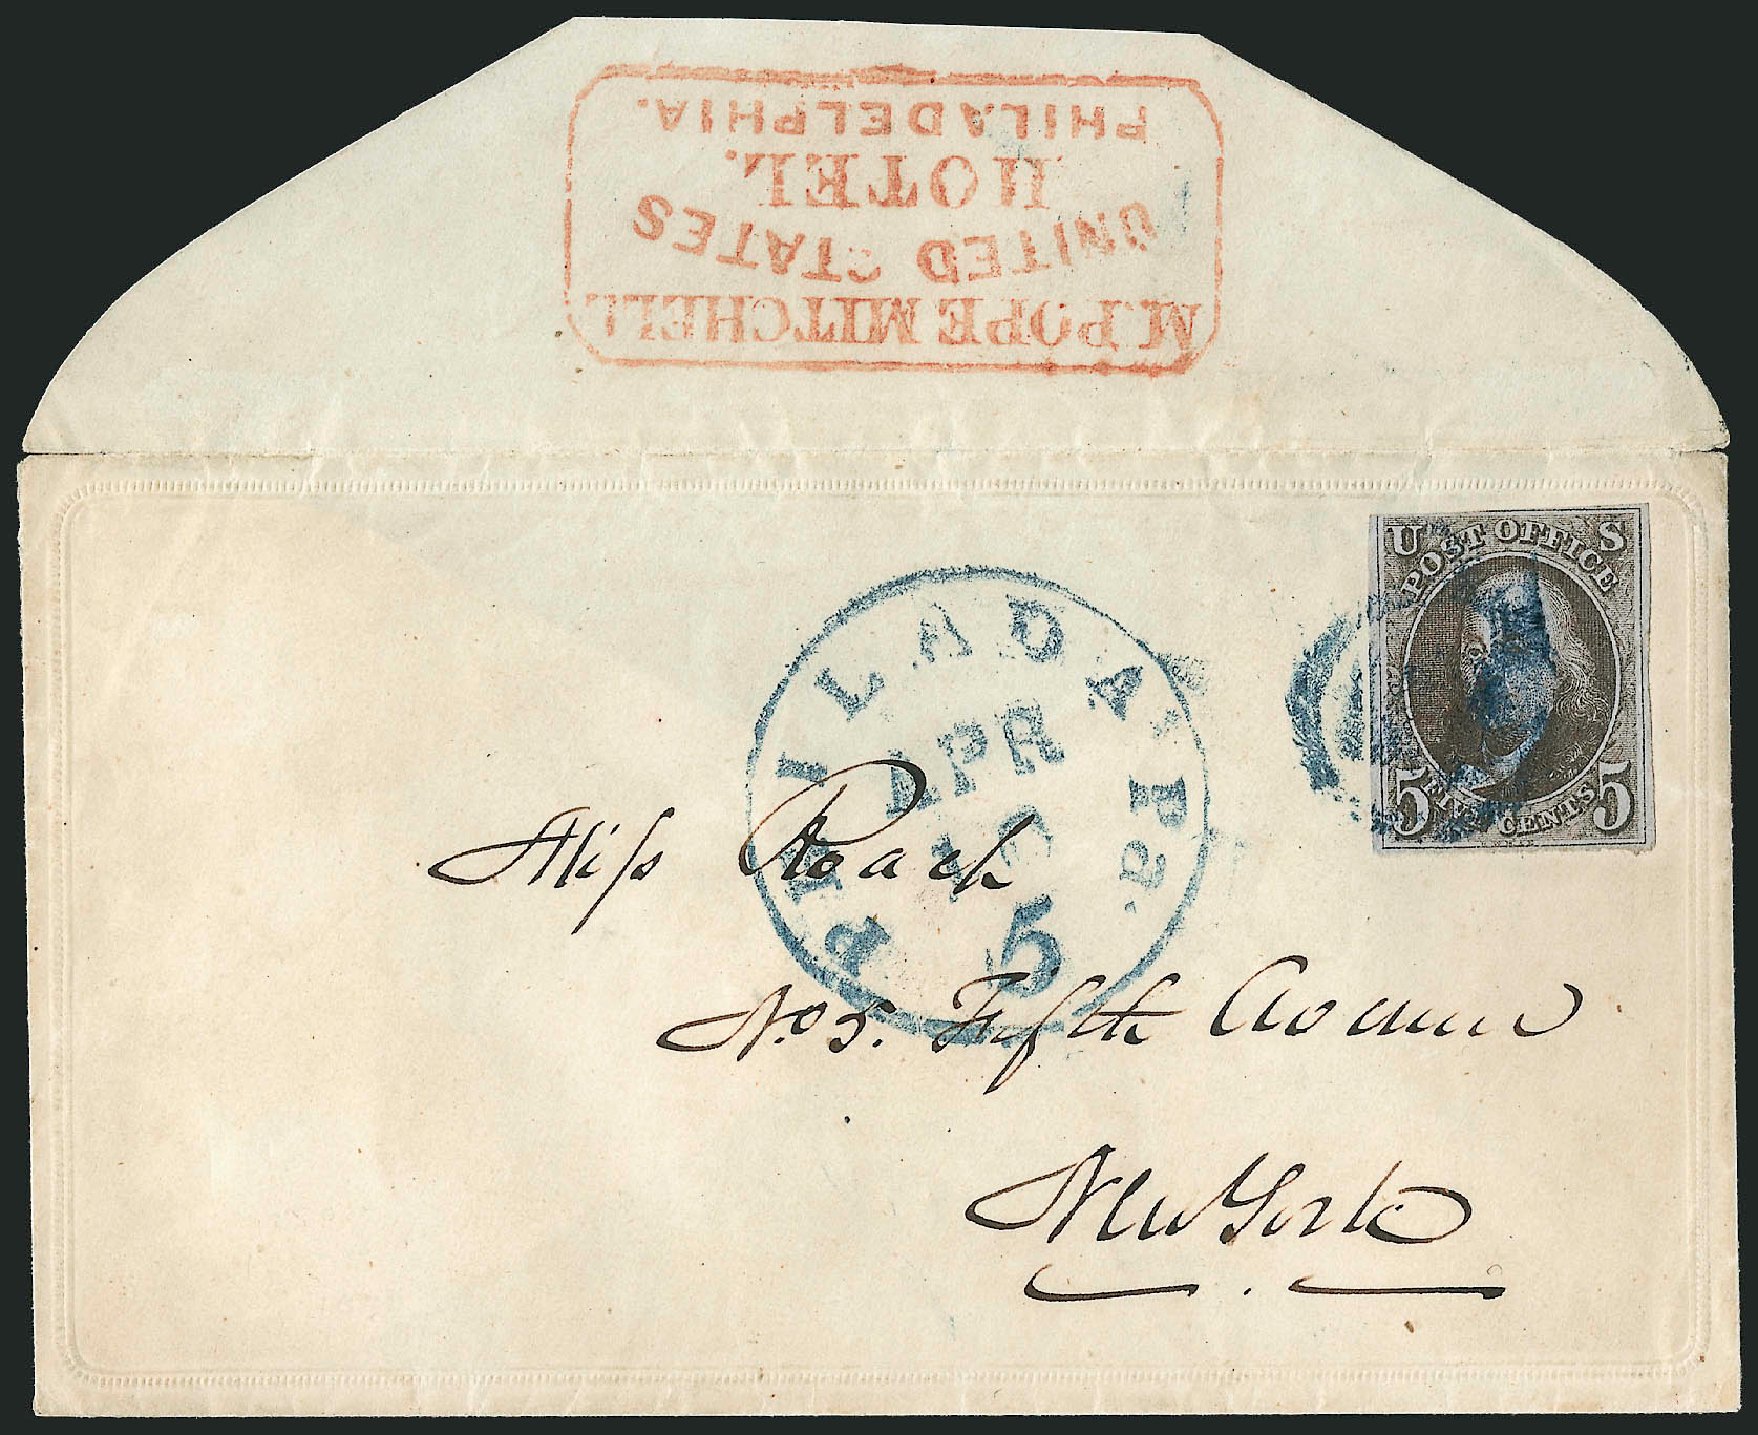 M. POPE MITCHELL
UNITED STATES
HOTEL.
PHILADELPHIA.
U S
POST OFFICE
5 FIVE CENTS 5
PHILADA. Pa.
APR
5
Miss Roach
No 5. Fifth Avenue
New York